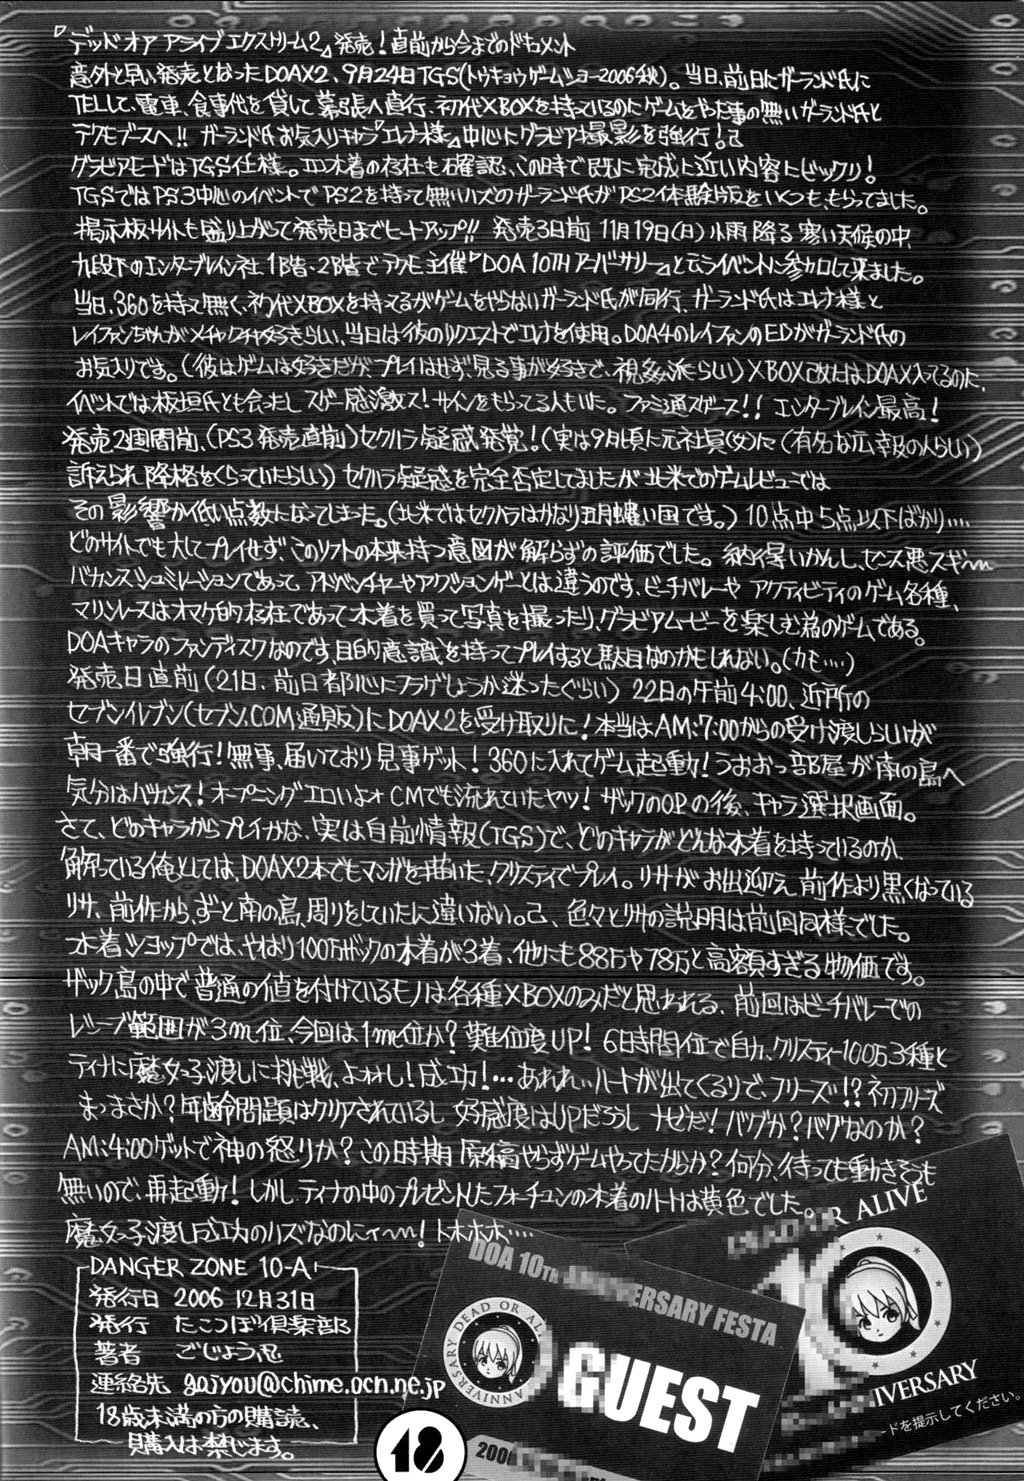 『デッド オア アライブ エクストリーム2』発売!直前から今までのドキュメント
意外と早い発売となったDOAX2、9月24日TGS(トウキョウゲームショー2006秋)。当日、前日にガーランド氏に
TELして、電車、食事代を貸して幕張へ直行、初代XBOXを持っているのにゲームをやった事の無いガーランド氏と
テクモブースへ!! ガーランド氏お気入りキャラ『エレナ様』中心にグラビア撮影を強行!
グラビアモードはTGS仕様。エロ水着の存在も確認、この時で既に完成に近い内容にビックリ!
TGSではPS3中心のイベントでPS2を持って無いハズのガーランド氏がPS2体験版をいくつも、もらってました。
掲示板サイトも盛り上がって発売日までヒートアップ!! 発売3日前 11月19日(日)小雨 降る 寒い天候の中、
九段下のエンターブレイン社1階、2階でテクモ主催『DOA 10THアニバーサリー』と云うイベントに参加して来ました。
当日、360を持って無く、初代XBOXを持ってるがゲームをやらないガーランド氏が同行、ガーランド氏はエレナ様と
レイファンちゃんがメチャクチャ好きらしい、当日は彼のリクエストでエレナを使用。DOA4のレイファンのEDがガーランド氏の
お気入りです。(彼はゲームは好きだが、プレイはせず、見る事が好きで、視姦派らしい)XBOX改にはDOAX入ってるのに、
イベントでは板垣氏とも会ったしスゲー感激ス!サインをもらってる人もいた。ファミ通スゲース!! エンターブレイン最高!
発売2週間前、(PS3発売直前)セクハラ疑惑発覚!(実は9月頃に元社員(女)に(有名な広報の人らしい)
訴えられ降格をくらっていたらしい)セクハラ疑惑を完全否定してましたが北米でのゲームレビューでは
その影響か低い点数になってしまった。(北米ではセクハラはかなり五月蝿い国です。)10点中5点以下ばかり‥‥
どのサイトでも大してプレイせず、このソフトの本来持つ意図が解らずの評価でした。納得いかんし、センス悪スギ〜
バカンスシュミレーションであって、アドベンチャーやアクションゲーとは違うのです、ビーチバレーや アクティビティのゲーム各種、
マリンレースはオマケ的存在であって水着を買って写真を撮ったり、グラビアムービーを楽しむ為のゲームである。
DOAキャラのファンディスクなのです、目的意識を持ってプレイすると駄目なのかもしれない。(カモ‥‥)
発売日直前(21日、前日都心にフラゲしようか迷ったぐらい)22日の午前4:00、近所の
セブンイレブン(セブン.COM通販)にDOAX2を受け取りに!本当はAM:7:00からの受け渡しらしいが
朝一番で強行!無事、届いており見事ゲット!360に入れてゲーム起動!うおおっ部屋が南の島へ
気分はバカンス!オープニングエロいよォCMでも流れていたヤツ!ザックのOPの後、キャラ選択画面。
さて、どのキャラからプレイかな、実は自前情報(TGS)で、どのキャラがどんな水着を持っているのか、
解っている俺としては、DOAX2本でもマンガを描いた、クリスティでプレイ。リサがお出迎え、前作より黒くなっている
リサ、前作から、ずーと南の島、周りをしていたに違いない。色々とリサの説明は前回同様でした。
水着ショップでは、やはり100万ザックの水着が3着、他にも88万や78万と高額すぎる物価です。
ザック島の中で普通の値を付けているモノは各種XBOXのみだと思われる、前回はビーチバレーでの
レシーブ範囲が3m位、今回は1m位か?難位度UP! 6日時間位で自力、クリスティー100万3種と
ティナに魔女っ子渡しに挑戦、よォォし!成功!…あれれぃハートが出てくるりで、フリーズ!?初フリーズ
まっまさか?年齢問題はクリアされているし 好感度はUPだろうし ナゼだ!バグか?バグなのか?
AM:4:00ゲットで神の怒りか?この時期 原稿やらずゲームやってたからか?何分、待っても動きそうも
無いので、再起動!しかし、ティナの中のプレゼントしたフォーチュンの水着のハートは黄色でした。
魔女っ子渡し成功のハズなのにィ〜!トホホホ‥‥
DANGER ZONE 10-A
発行日 2006 12月31日
発行 たこつぼ倶楽部
著者 ごじょう忍
連絡先 gojyou@chime.ocn.ne.jp
18歳未満の方の購読、
購入は禁じます。
DOA 10TH ANNIVERSARY FESTA
ANNIVERSARY DEAD OR AL
GUEST
200
DEAD OR ALIVE
10
NIVERSARY
ードを提示してください。
18